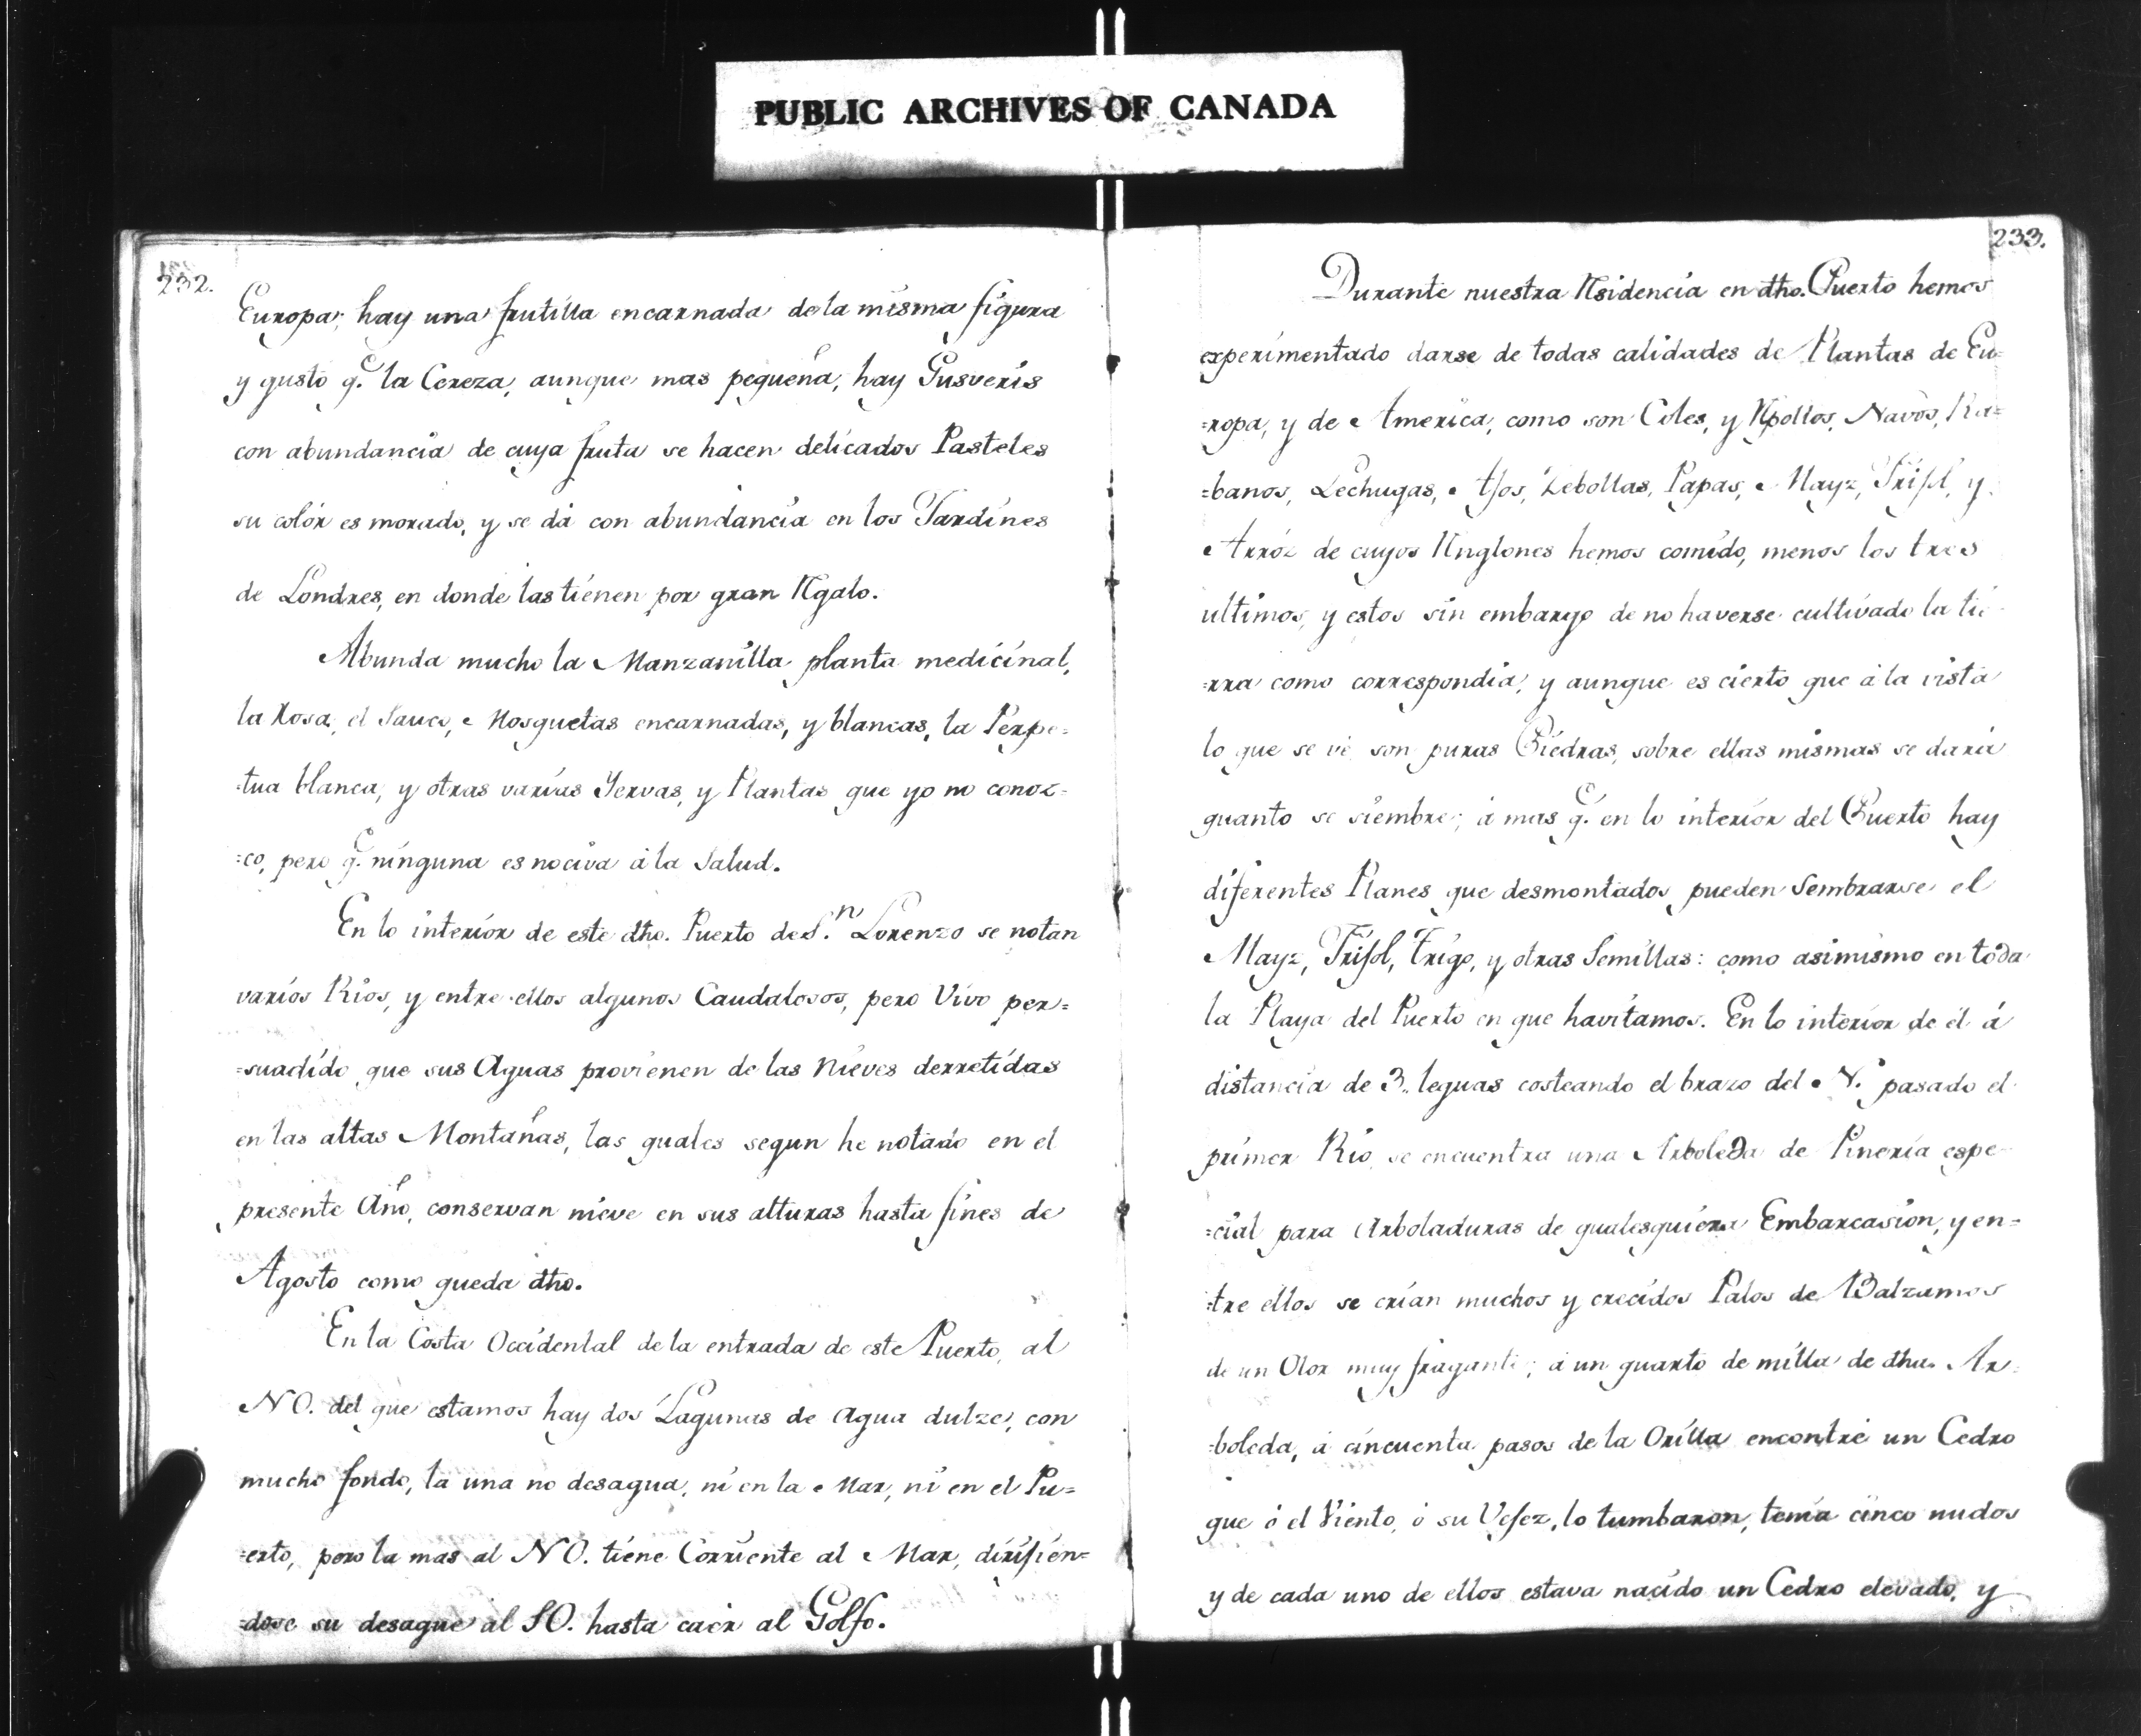 PUBLIC ARCHIVES OF CANADA
232.
Europa; hay una frutilla encarnada de la misma figura
y gusto q.e la Cereza, aunque mas pequeña; hay Gusveris
con abundancia de cuya fruta se hacen delicados Pasteles
su colór es morado, y se dá con abundancia en los Jardines
de Londres, en donde las tienen por gran Rgalo.
Abunda mucho la Manzanilla planta medicinal,
la Rosa, el Sauco, Mosquetas encarnadas, y blancas, la Perpe=
=tua blanca, y otras varias Yervas, y Plantas que yo no conoz=
=co, pero q.e ninguna es nociva á la Salud.
En lo interior de este dho. Puerto de S.n Lorenzo se notan
varios Rios, y entre ellos algunos Caudalosos, pero Vivo per=
=suadido que sus Aguas provienen de las Nieves derretidas
en las altas Montañas, las quales segun he notado en el
presente Año, conservan nieve en sus alturas hasta fines de
Agosto como queda dho.
En la Costa Occidental de la entrada de este Puerto, al
NO. del que estamos hay dos Lagunas de Agua dulze, con
mucho fondo, la una no desagua, ni en la Mar, ni en el Pu=
=erto, pero la mas al NO. tiene Corriente al Mar, dirijien=
=dose su desague al SO. hasta caér al Golfo.
233.
Durante nuestra Rsidencia en dho. Puerto hemos
experimentado darse de todas calidades de Plantas de Eu=
=ropa, y de America, como son Coles, y Rpollos, Navos, Ra=
=banos, Lechugas, Ajos, Zebollas, Papas, Mayz, Frijol, y
Arróz de cuyos Rnglones hemos comido, menos los tres
ultimos, y estos sin embargo de no haverse cultivado la tie=
=rra como correspondia; y aunque es cierto que á la vista
lo que se vé son puras Piedras, sobre ellas mismas se daria
quanto se siembre; á mas q.e en lo interior del Puerto hay
diferentes Planes que desmontados pueden Sembrarse el
Mayz, Frijol, Trigo, y otras Semillas: como asimismo en toda
la Playa del Puerto en que havitamos. En lo interior de él á
distancia de 3,, leguas costeando el brazo del N. pasado el
primer Rio, se encuentra una Arboleda de Pineria espe=
=cial para Arboladuras de qualesquiera Embarcasion, y en=
=tre ellos se crian muchos y crecidos Palos de Balzamos
de un Olor muy fragante; á un quarto de milla de dha. Ar=
=boleda, á cincuenta pasos de la Orilla encontré un Cedro
que ó el Viento, ó su Vejez, lo tumbaron, tenia cinco nudos
y de cada uno de ellos estava nacido un Cedro elevado, y